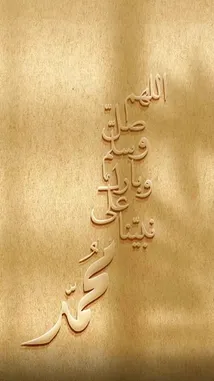 اللهم
صل
وسلم
وبارك
على
نبينا
محمد